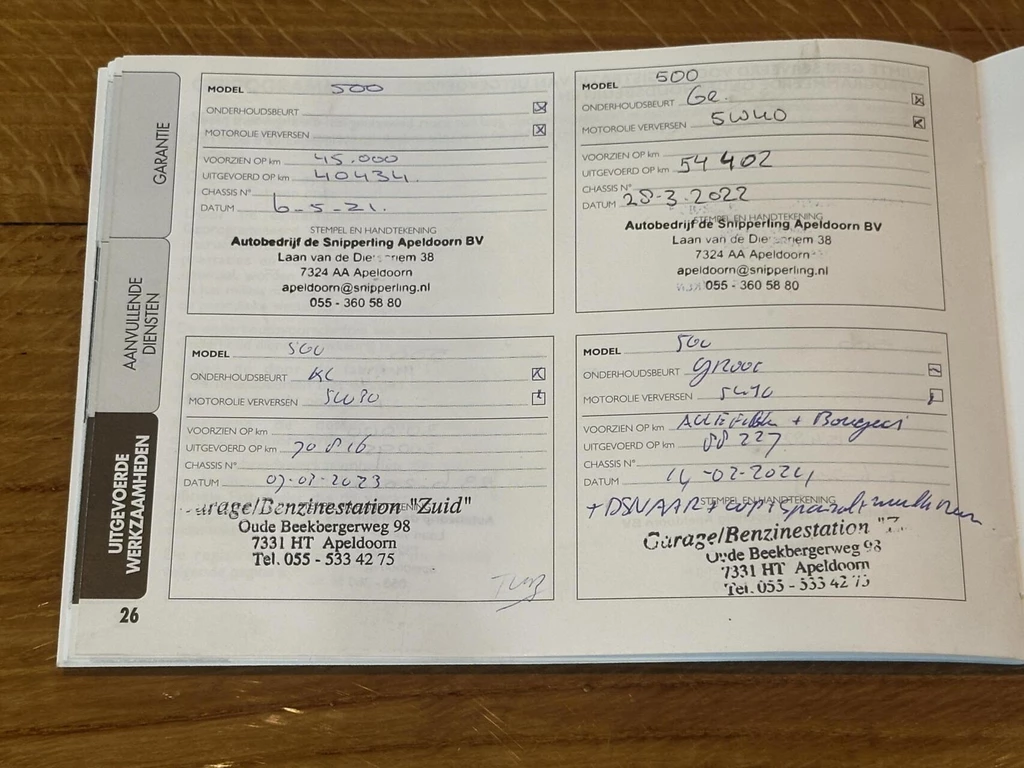 GARANTIE
AANVULLENDE
DIENSTEN
UITGEVOERDE
WERKZAAMHEDEN
26
MODEL 500
ONDERHOUDSBEURT
MOTOROLIE VERVERSEN
VOORZIEN OP km 45.000
UITGEVOERD OP km 40434
CHASSIS N°
DATUM 6-5-21.
STEMPEL EN HANDTEKENING
Autobedrijf de Snipperling Apeldoorn BV
Laan van de Dierenriem 38
7324 AA Apeldoorn
apeldoorn@snipperling.nl
055 - 360 58 80
MODEL 500
ONDERHOUDSBEURT Gr.
MOTOROLIE VERVERSEN 5W40
VOORZIEN OP km
UITGEVOERD OP km 54402
CHASSIS N°
DATUM 28-3-2022
STEMPEL EN HANDTEKENING
Autobedrijf de Snipperling Apeldoorn BV
Laan van de Dierenriem 38
7324 AA Apeldoorn
apeldoorn@snipperling.nl
055 - 360 58 80
MODEL 500
ONDERHOUDSBEURT KL
MOTOROLIE VERVERSEN
VOORZIEN OP km
UITGEVOERD OP km 70816
CHASSIS N°
DATUM 07-07-2023
Garage/Benzinestation "Zuid"
Oude Beekbergerweg 98
7331 HT Apeldoorn
Tel. 055 - 533 42 75
MODEL 500
ONDERHOUDSBEURT groot
MOTOROLIE VERVERSEN
VOORZIEN OP km + Bougies
UITGEVOERD OP km 88227
CHASSIS N°
DATUM 14-02-2024
STEMPEL EN HANDTEKENING
Garage/Benzinestation
Oude Beekbergerweg 98
7331 HT Apeldoorn
Tel. 055 - 533 42 75